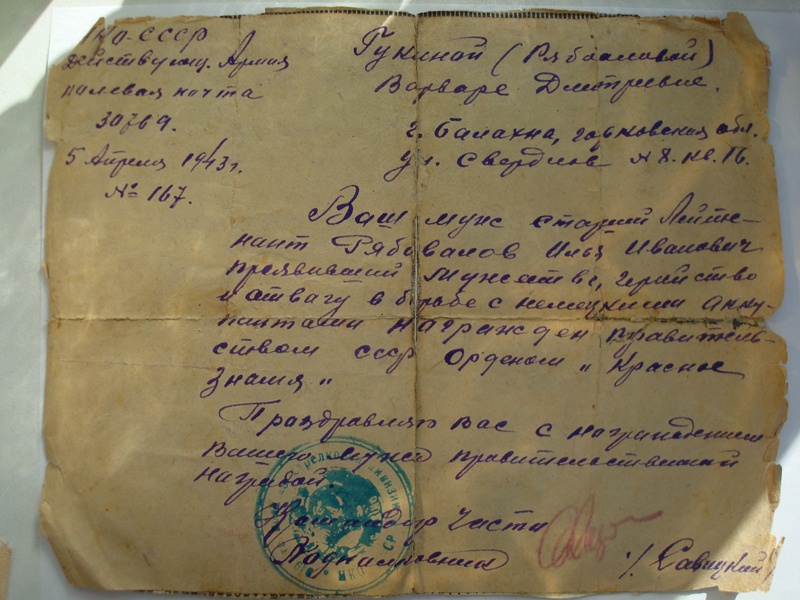 НКО-СССР
Действующ. Армия
полевая почта
30769.
5 Апреля 1943 г.
№ 167.
Гукиной (Рябоваловой)
Варваре Дмитриевне.
г. Балахна, горьковская обл.
ул. Свердлов № 8. кв. 16.
Ваш муж старший Лейте-
нант Рябовалов Илья Иванович
проявивший Мужество, геройство
и отвагу в борьбе с немецкими окку-
пантами награжден правитель-
ством СССР Орденом „Красное
Знамя„
Поздравляю Вас с награждением
Вашего мужа правительственной
наградой.
Командир части
Подполковник /Савицкий/